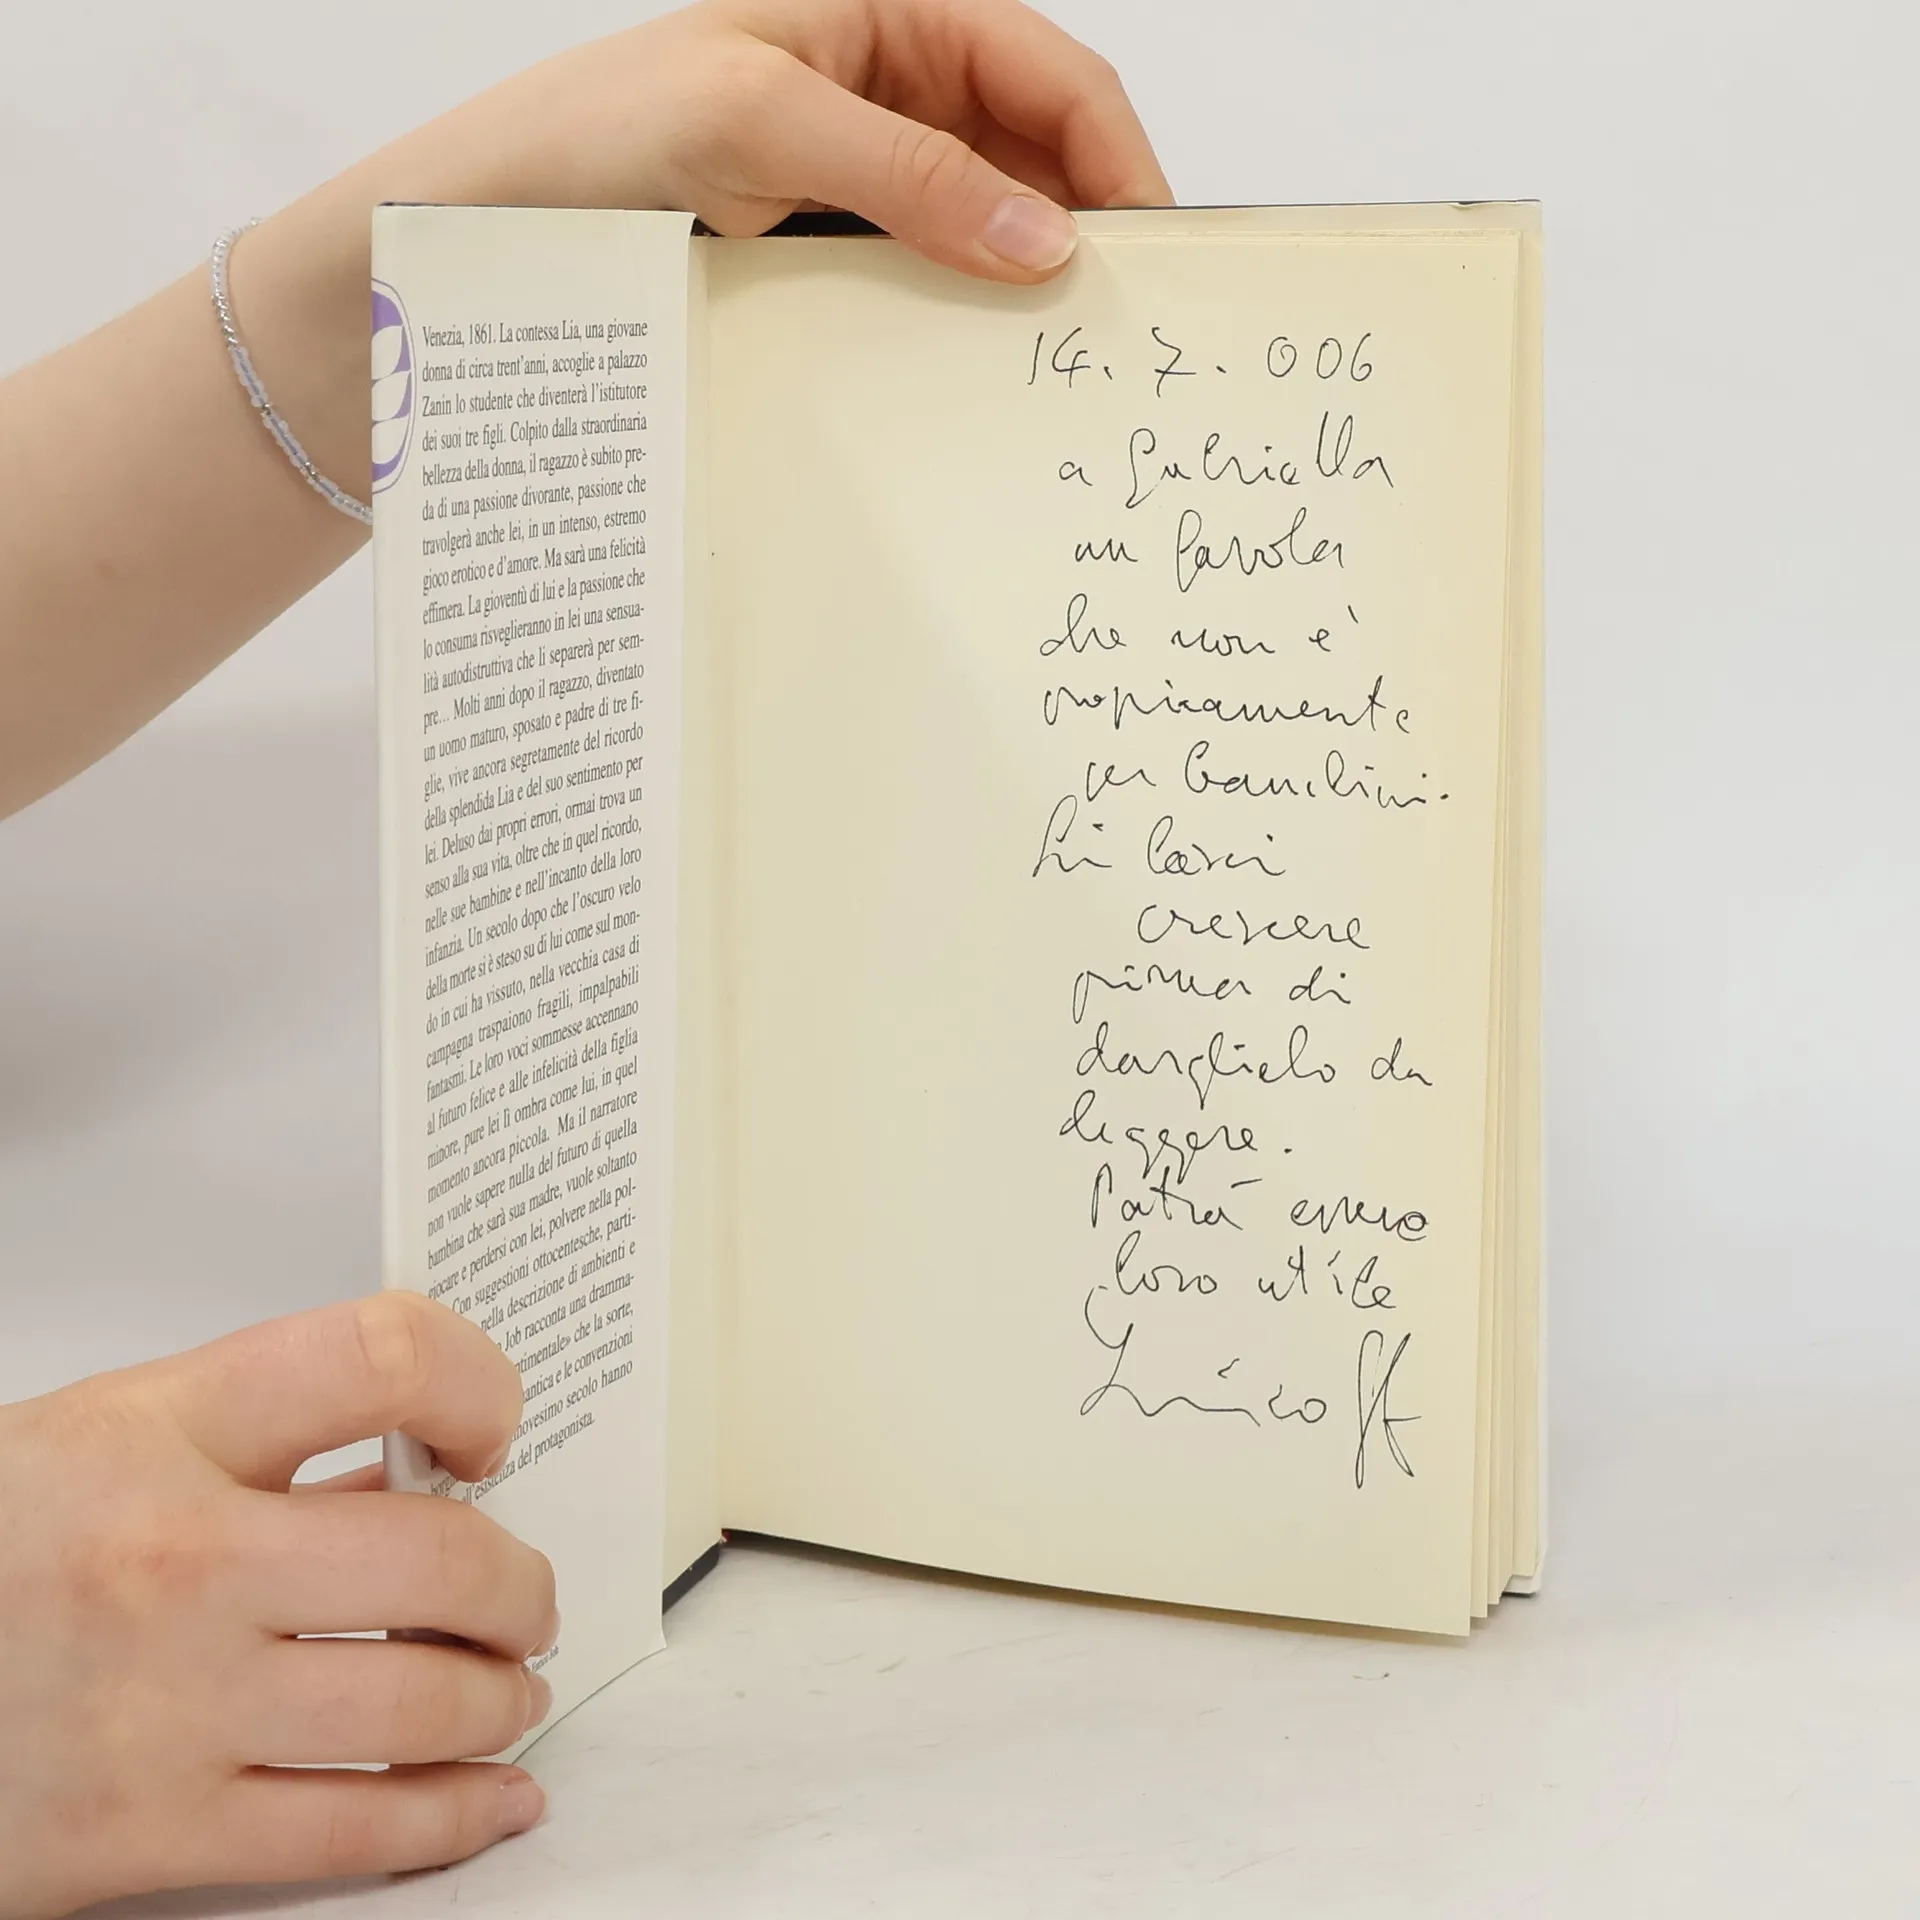 Venezia, 1861. La contessa Lia, una giovane
donna di circa trent'anni, accoglie a palazzo
Zanin lo studente che diventerà l'istitutore
dei suoi tre figli. Colpito dalla straordinaria
bellezza della donna, il ragazzo è subito pre-
da di una passione divorante, passione che
travolgerà anche lei, in un intenso, estremo
gioco erotico e d'amore. Ma sarà una felicità
effimera. La gioventù di lui e la passione che
lo consuma risveglieranno in lei una sensua-
lità autodistruttiva che li separerà per sem-
pre... Molti anni dopo il ragazzo, diventato
un uomo maturo, sposato e padre di tre fi-
glie, vive ancora segretamente del ricordo
della splendida Lia e del suo sentimento per
lei. Deluso dai propri errori, ormai trova un
senso alla sua vita, oltre che in quel ricordo,
nelle sue bambine e nell'incanto della loro
infanzia. Un secolo dopo che l'oscuro velo
della morte si è steso su di lui come sul mon-
do in cui ha vissuto, nella vecchia casa di
campagna traspaiono fragili, impalpabili
fantasmi. Le loro voci sommesse accennano
al futuro felice e alle infelicità della figlia
minore, pure lei lì ombra come lui, in quel
momento ancora piccola. Ma il narratore
non vuole sapere nulla del futuro di quella
bambina che sarà sua madre, vuole soltanto
giocare e perdersi con lei, polvere nella pol-
Con suggestioni ottocentesche, parti-
nella descrizione di ambienti e
Job racconta una dramma-
ntimentale» che la sorte,
antica e le convenzioni
novesimo secolo hanno
ll'esistenza del protagonista.
Enrico Job
14.7.006
a Gabriella
un favola
che non è
propriamente
per bambini.
Li lasci
crescere
prima di
darglielo da
leggere.
Potrà essere
loro utile
Enrico Job